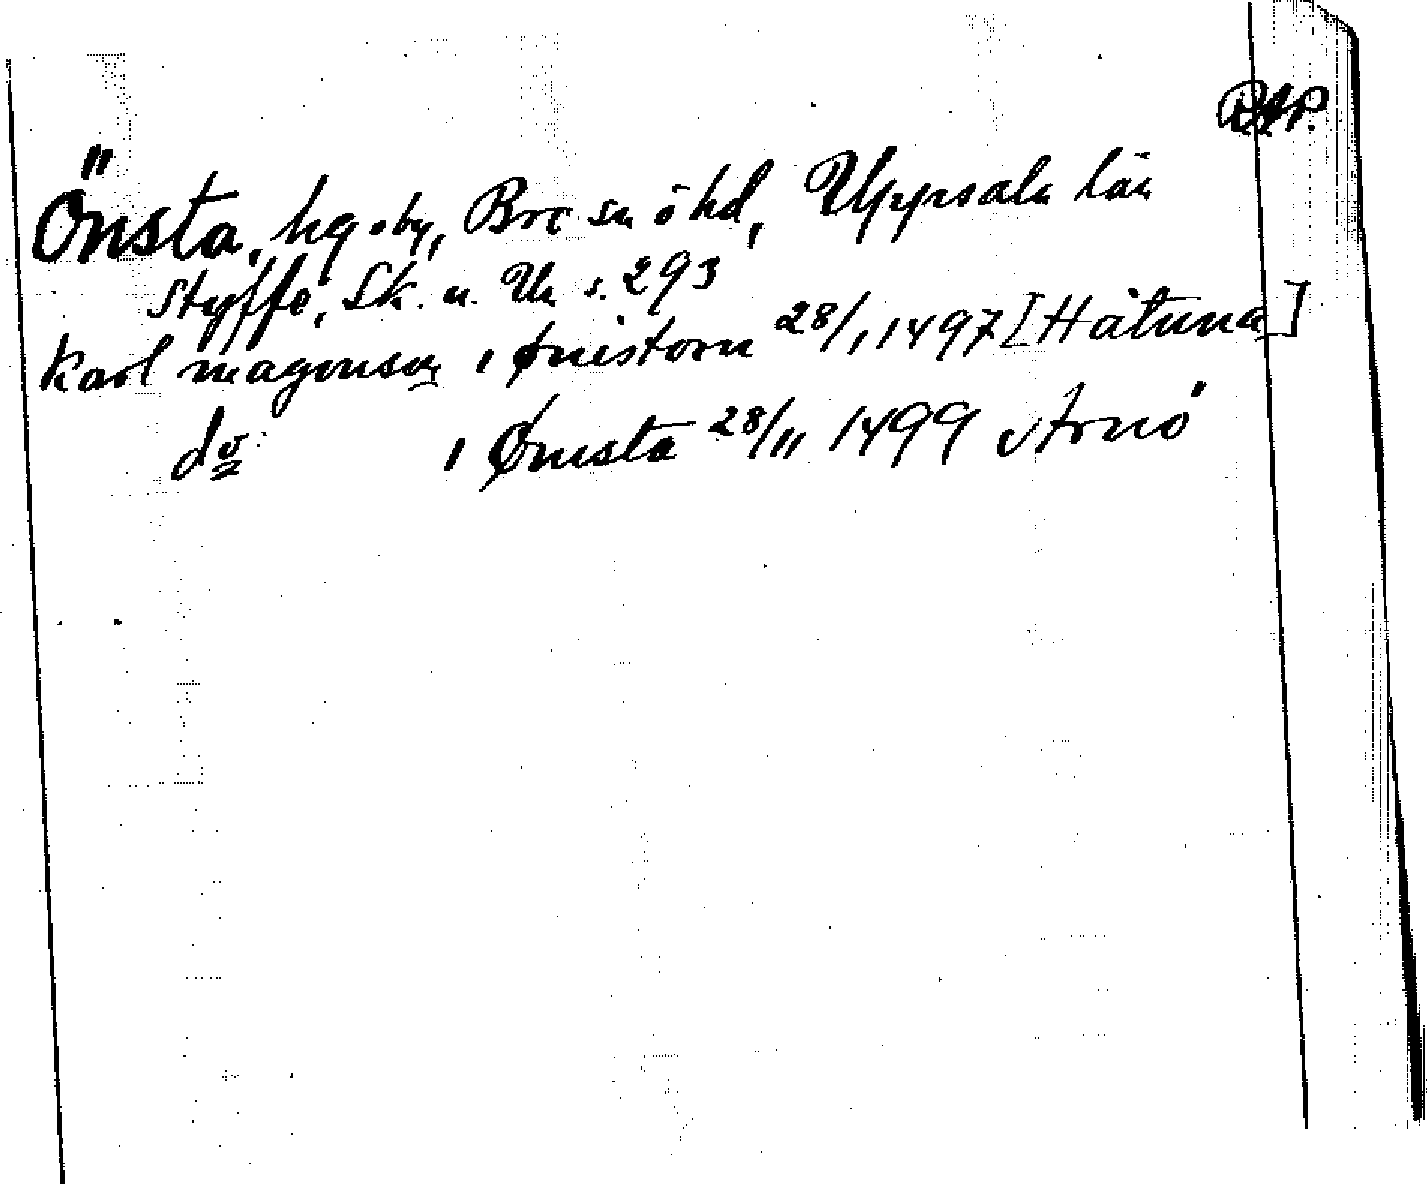 RAP.
Önsta, hg o by, Bro sn o hd, Uppsala län
Styffe, Sk. u. Un s. 293
Karl magonson i ønistorn 28/1 1497 [Håtuna]
do i Ønista 28/11 1499 Arnö